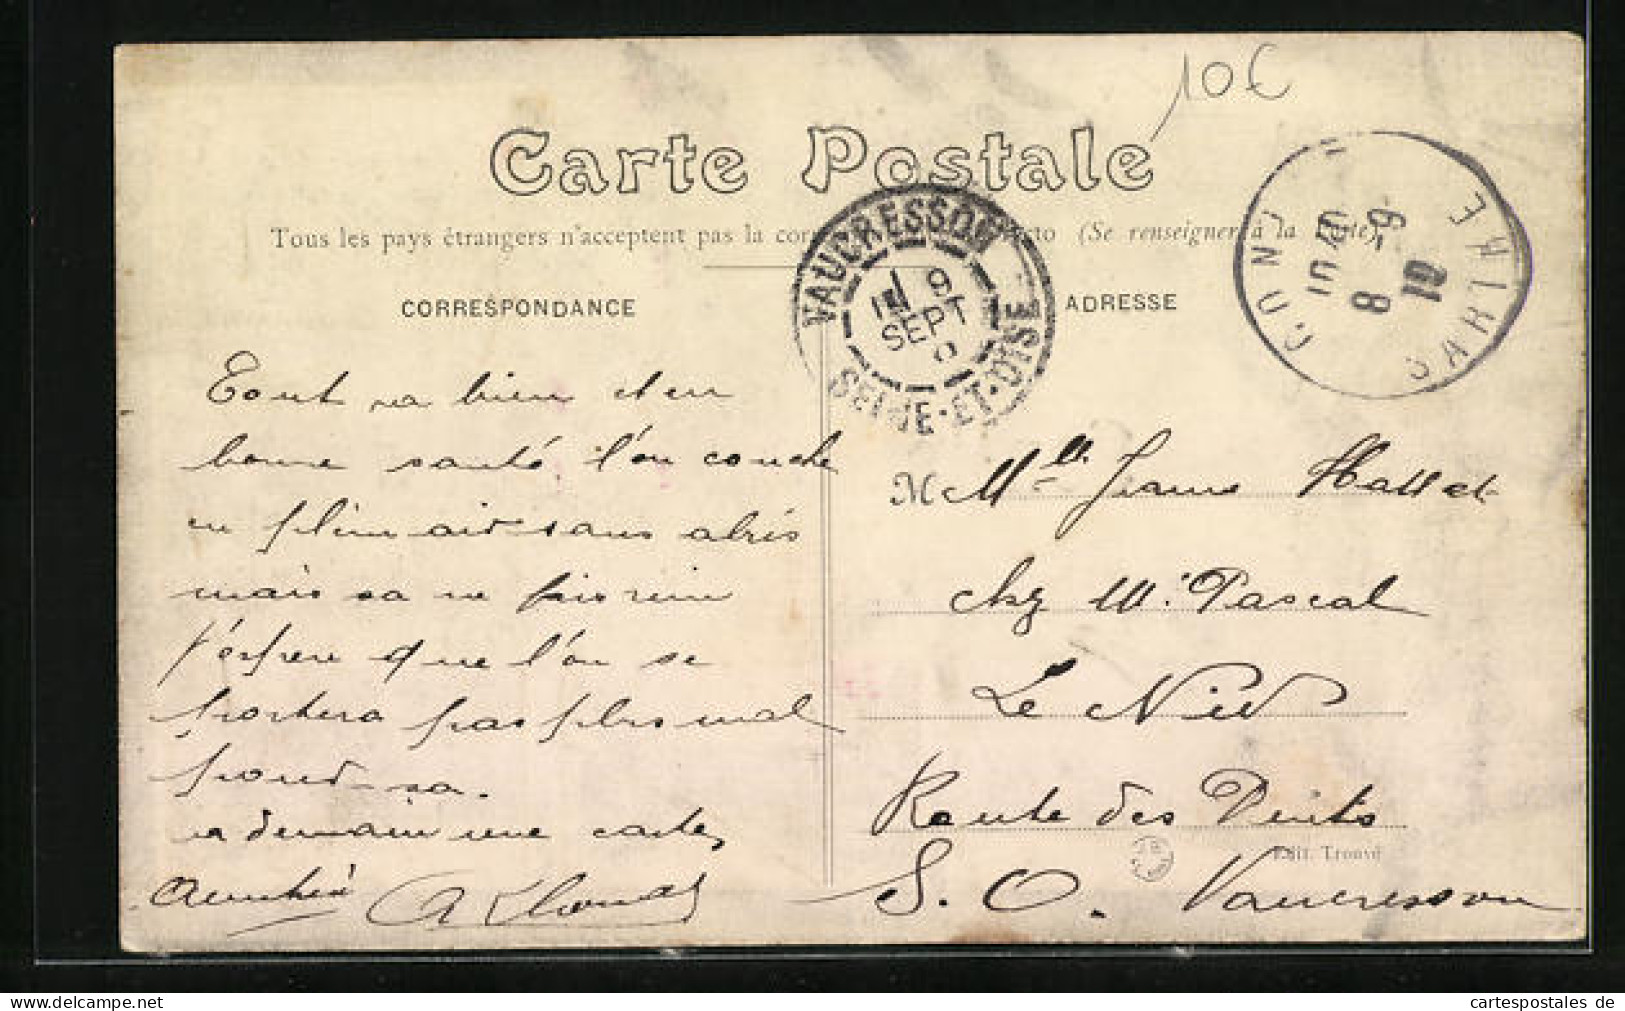 10€
Carte Postale
Tous les pays étrangers n'acceptent pas la cor recto (Se renseigner à la Poste)
CORRESPONDANCE
ADRESSE
VAUCRESSON
9
SEPT
SEINE-ET-OISE
8 -9
10
SARLIME
Tout va bien et en
bonne santé l'on couche
en plein air sans abris
mais sa ne fais rien
j'espère que l'on se
portera pas plus mal
pour sa.
a demain une carte
M Mlle Jeanne
chez Mr Pascal
Le Nid
Route des Puits
S. O. Vaucresson
Edit. Trouvé
cartespostales de